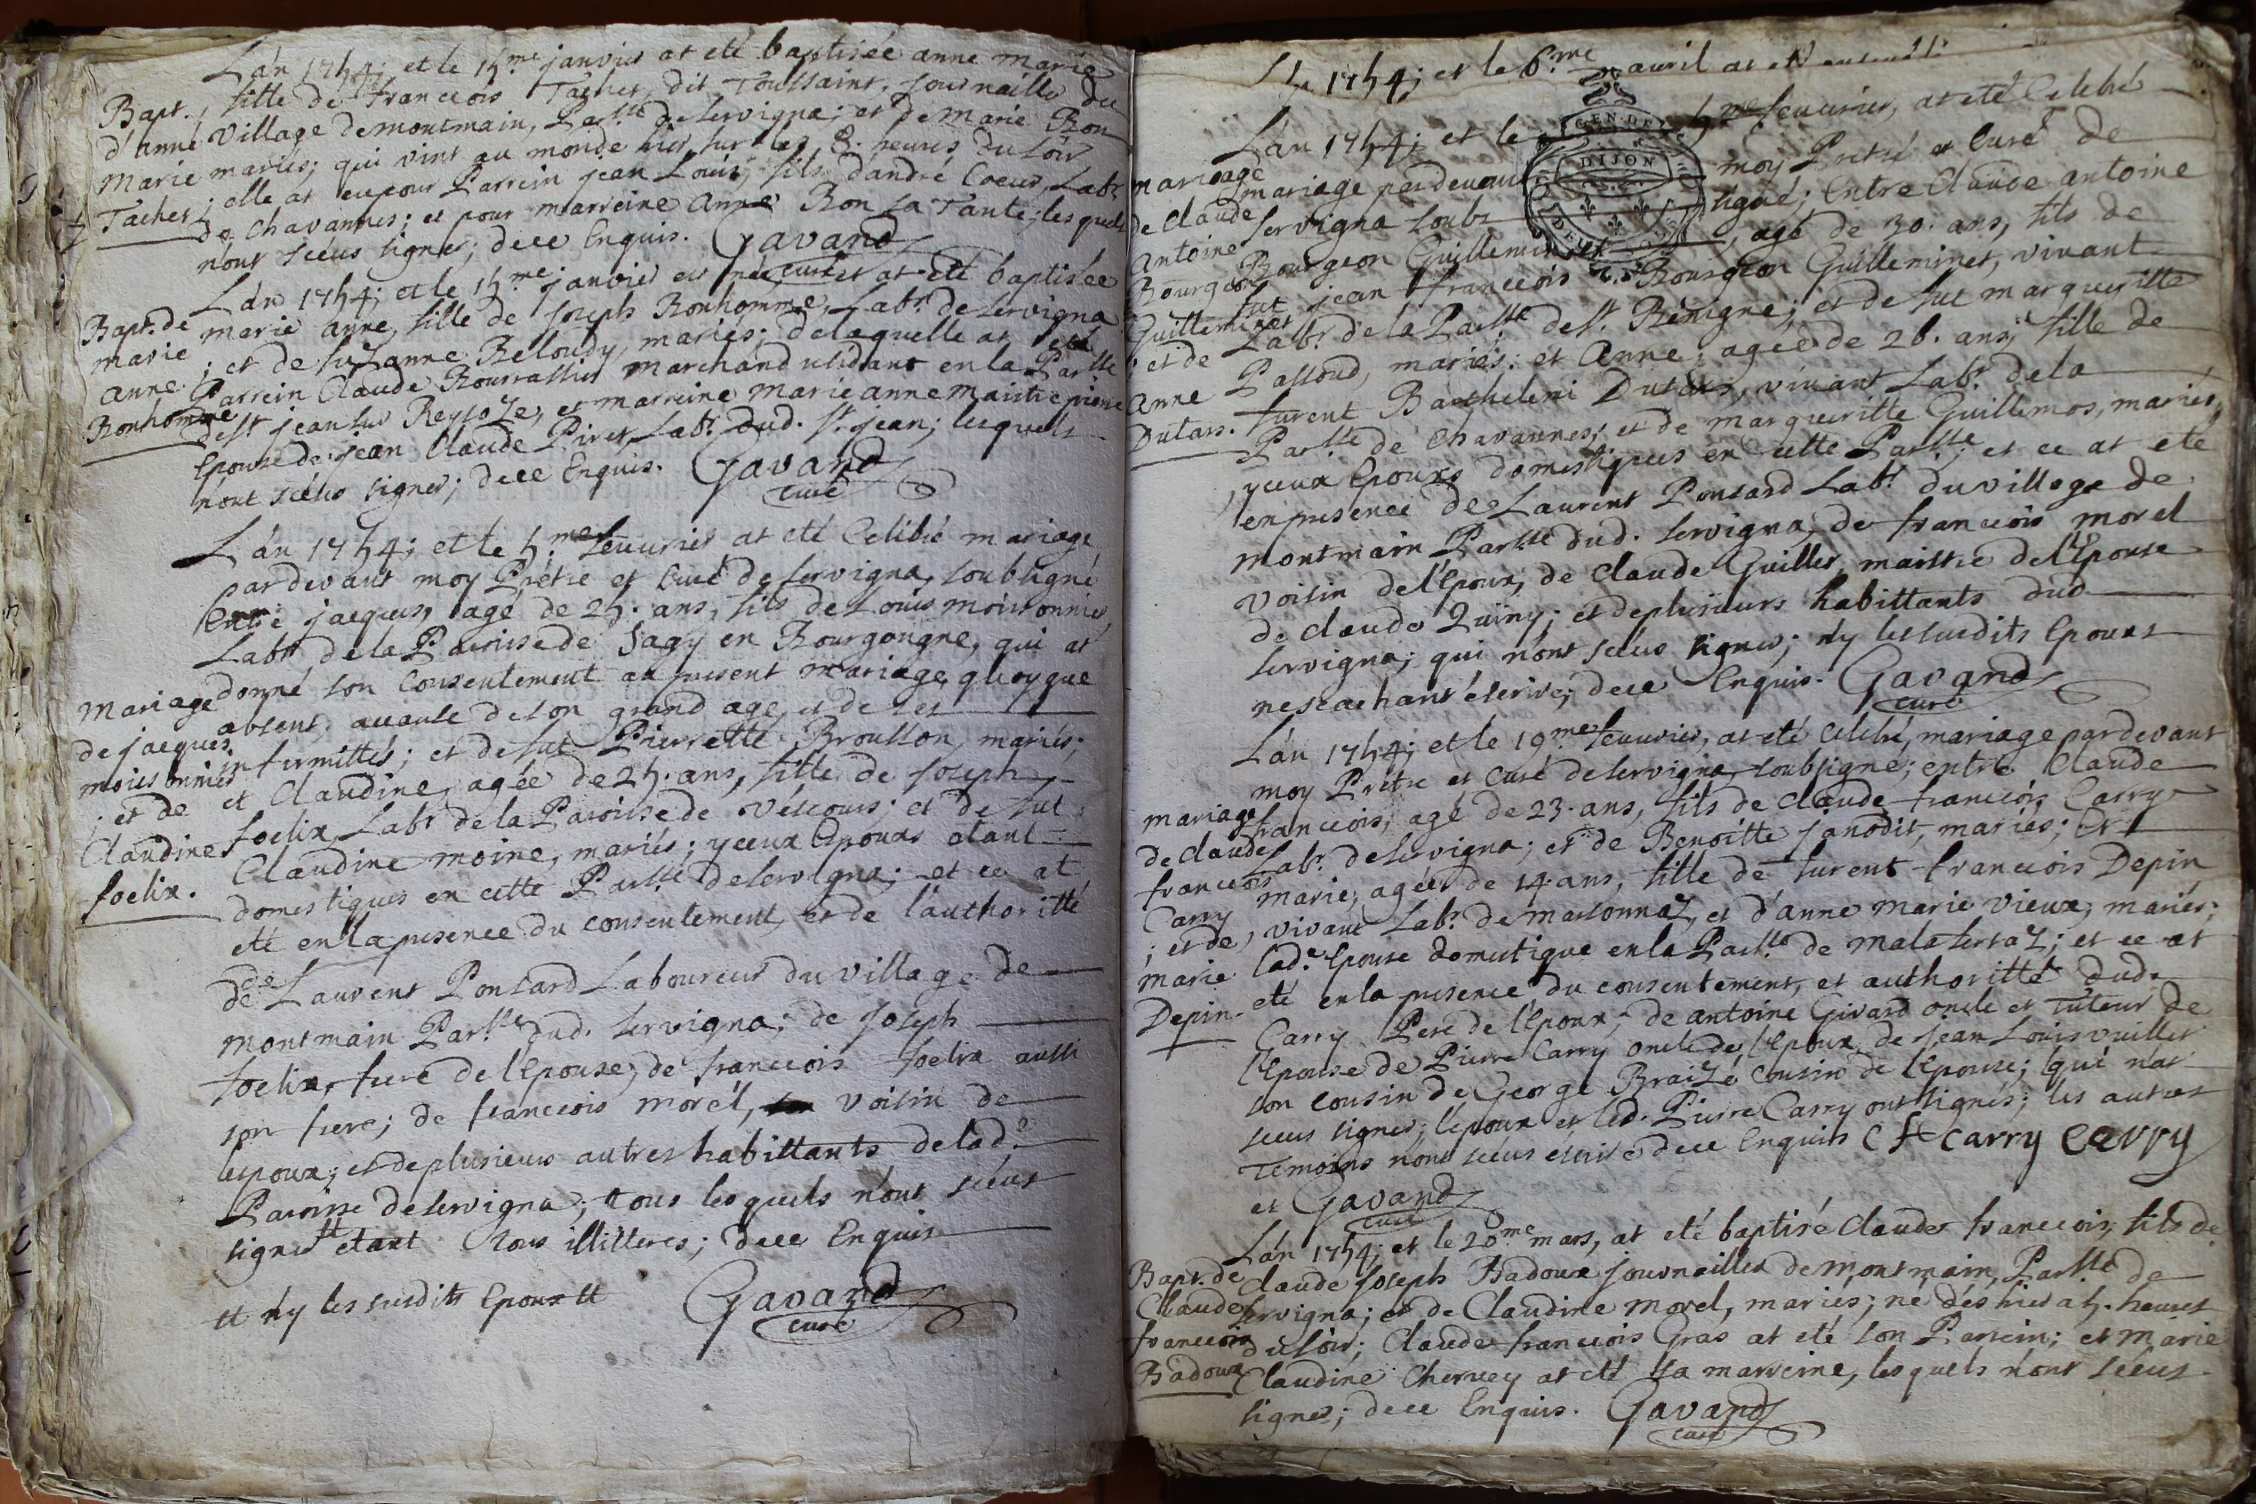 L'an 1754; et le 15.me janvier at eté baptisée anne marie
Bapt. fille de francois Tacher, dit Toussaint, journaillier du
d'anne village de montmain, Par.sse de servigna; et de marie Bon
marie mariés; qui vint au monde hier sur les 8. heures du soir
Tacher; elle at eu pour Parrein jean Louis, fils d'andré Coeur, Labr.
de Chavannes; et pour marreine anne Bon sa Tante; lesquels
n'ont scéus signer; de ce Enquis. Gavand
curé
L'an 1754; et le 15.me janvier est née et at eté baptisée
Bapt. de marie anne, fille de joseph Bonhomme, Labr. de servigna
marie ; et de suzanne Beloudy, mariés; de laquelle at eté
anne Parrein Claude Bourrassier marchand residant en la Par.sse
Bonhomme de st. jean sur Reyssoze, et marreine marie anne maistre
Epouse de jean Claude Piret, Labr. dud. st. jean; lesquels
n'ont scéus signer; de ce Enquis. Gavand
curé
L'an 1754; et le 5.me feuvrier at eté Celebré mariage
par devant moy Prêtre et Curé de servigna, soubsigné
Entre jacques, agé de 25. ans, fils de Louis moissonnier,
Labr. de la Paroisse de Sagy en Bourgongne, qui at
mariage donné son Consentement au present mariage, quoyque
absent, a cause de son grand age, et de ses
de jacques infirmittés; et de fut Pierrette Brousson, mariés;
moissonnier et Claudine, agée de 25. ans, fille de joseph
; et de foelix, Labr. de la Paroisse de Vescours; et de fut
Claudine Claudine moine, mariés; yceux Epoux étant
foelix. domestiques en cette Par.sse de servigna; et ce at
eté en la presence du consentement et de l'authoritté
de Laurent Ponsard Laboureur du village de
montmain Par.sse dud. servigna; de joseph
foelix, frere de l'Epouse; de francois foelix aussi
son frere; de francois morel, voisin de
lepoux; et de plusieurs autres habittants de lad.e
Paroisse de servigna; tous lesquels n'ont scéus
signer tt étant tous illitteres; de ce Enquis
tt n'y les susdits Epoux tt Gavand
curé
1754; et le 6.me avril at eté
L'an 1754; et le 5.me feuvrier, at eté Celebré
mariage mariage par devant moy Prêtre et Curé de
de Claude servigna soubsigné; Entre Claude antoine
antoine Bourgeon Guilleminet, agé de 30. ans, fils de
Bourgeon fut jean francois Bourgeon Guilleminet, vivant
Guilleminet Labr. de la Par.sse de st. Benigne; et de fut margueritte
; et de Passoud, mariés; et anne, agée de 26. ans, fille de
anne furent Barthelemi Dutars, vivant Labr. de la
Dutars. Par.sse de Chavannes; et de margueritte Guillemos, mariés,
yceux Epoux domestiques en cette Par.sse; et ce at eté
en presence de Laurent Ponsard Labr. du village de
montmain Par.sse dud. servigna, de francois morel
voisin de l'Epoux, de Claude Guiller, maistre de l'Epouse
de Claude Quiny; et de plusieurs habittants dud
servigna; qui n'ont scéus signer; n'y les susdits Epoux
ne scachant écrire; de ce Enquis. Gavand
curé
L'an 1754; et le 19.me feuvrier, at eté celebré, mariage par devant
moy Prêtre et Curé de servigna, soubsigné; entre Claude
mariage francois, agé de 23. ans, fils de Claude francois Carry
de Claude Labr. de servigna; et de Benoitte janodit, mariés; Et
francois marie, agée de 14. ans, fille de furent francois Depin
Carry vivant Labr. de marsonnaz, et d'anne marie vieux, mariés;
; et de lad.e Epouse domestique en la Par.sse de malafertaz; et ce at
marie eté en la presence du consentement, et authoritté dud.
Depin. Carry Pere de l'Epoux; de antoine Girard oncle et Tuteur de
l'Epouse de Pierre Carry oncle de l'Epoux, de jean Louis vuiller
son cousin de George Braizé cousin de l'Epouse; qui n'at
sceus signer; l'epoux et led. Pierre Carry ont signés; les autres
Temoins n'ont scéus écrire de ce Enquis C f Carry carry
et Gavand
curé
L'an 1754; et le 20.me mars, at eté baptisé Claude francois, fils de
Bapt. de Claude joseph Badoux journaillier de montmain, Par.sse de
Claude servigna; et de Claudine morel, mariés; né dés hier a 5. heures
francois du soir; Claude francois Gras at eté son Parrein; et marie
Badoux Claudine Chervey at eté sa marreine, lesquels n'ont scéus
signer; de ce Enquis. Gavand
curé
GEN. DE
DIJON